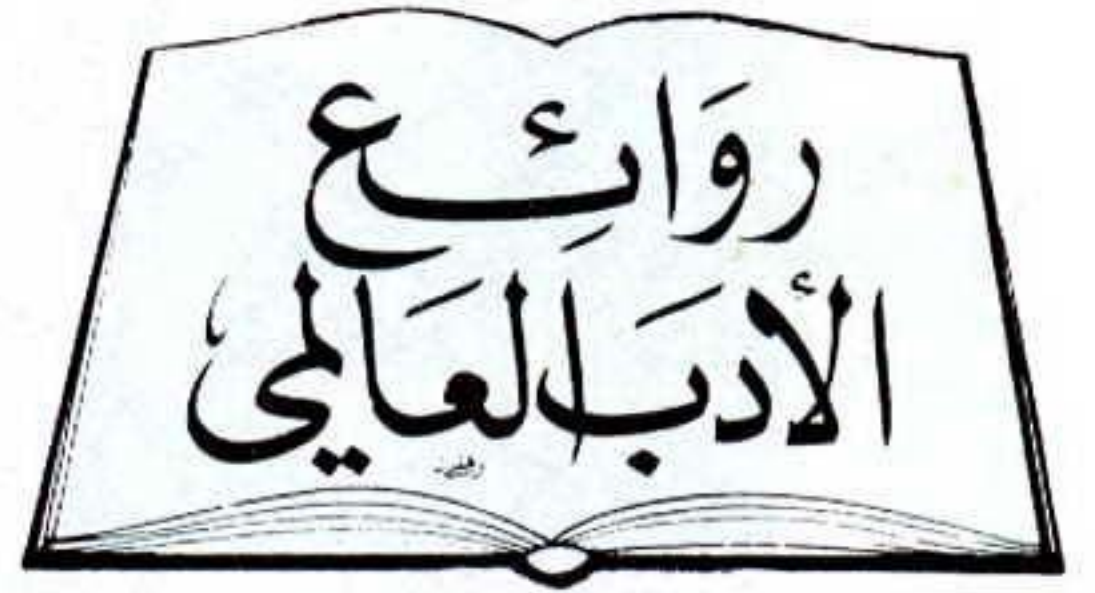 رَوَائِع
الأدبَ العَالمي